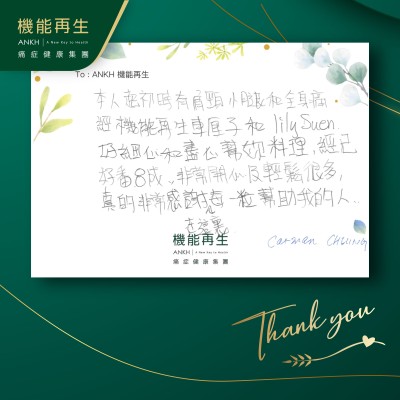 機能再生
ANKH | A New Key to Health
痛症健康集團
To : ANKH 機能再生
本人在初時有肩頸小腿和全身痛
經機能再生車屋子和 lily Suen
好細心和盡心幫妳料理. 經已
好番8成. 非常開心及輕鬆很多,
真的非常感謝在每一位幫助我的人..
這裏
機能再生
ANKH | A New Key to Health
痛症健康集團
Carman CHEUNG
Thank you